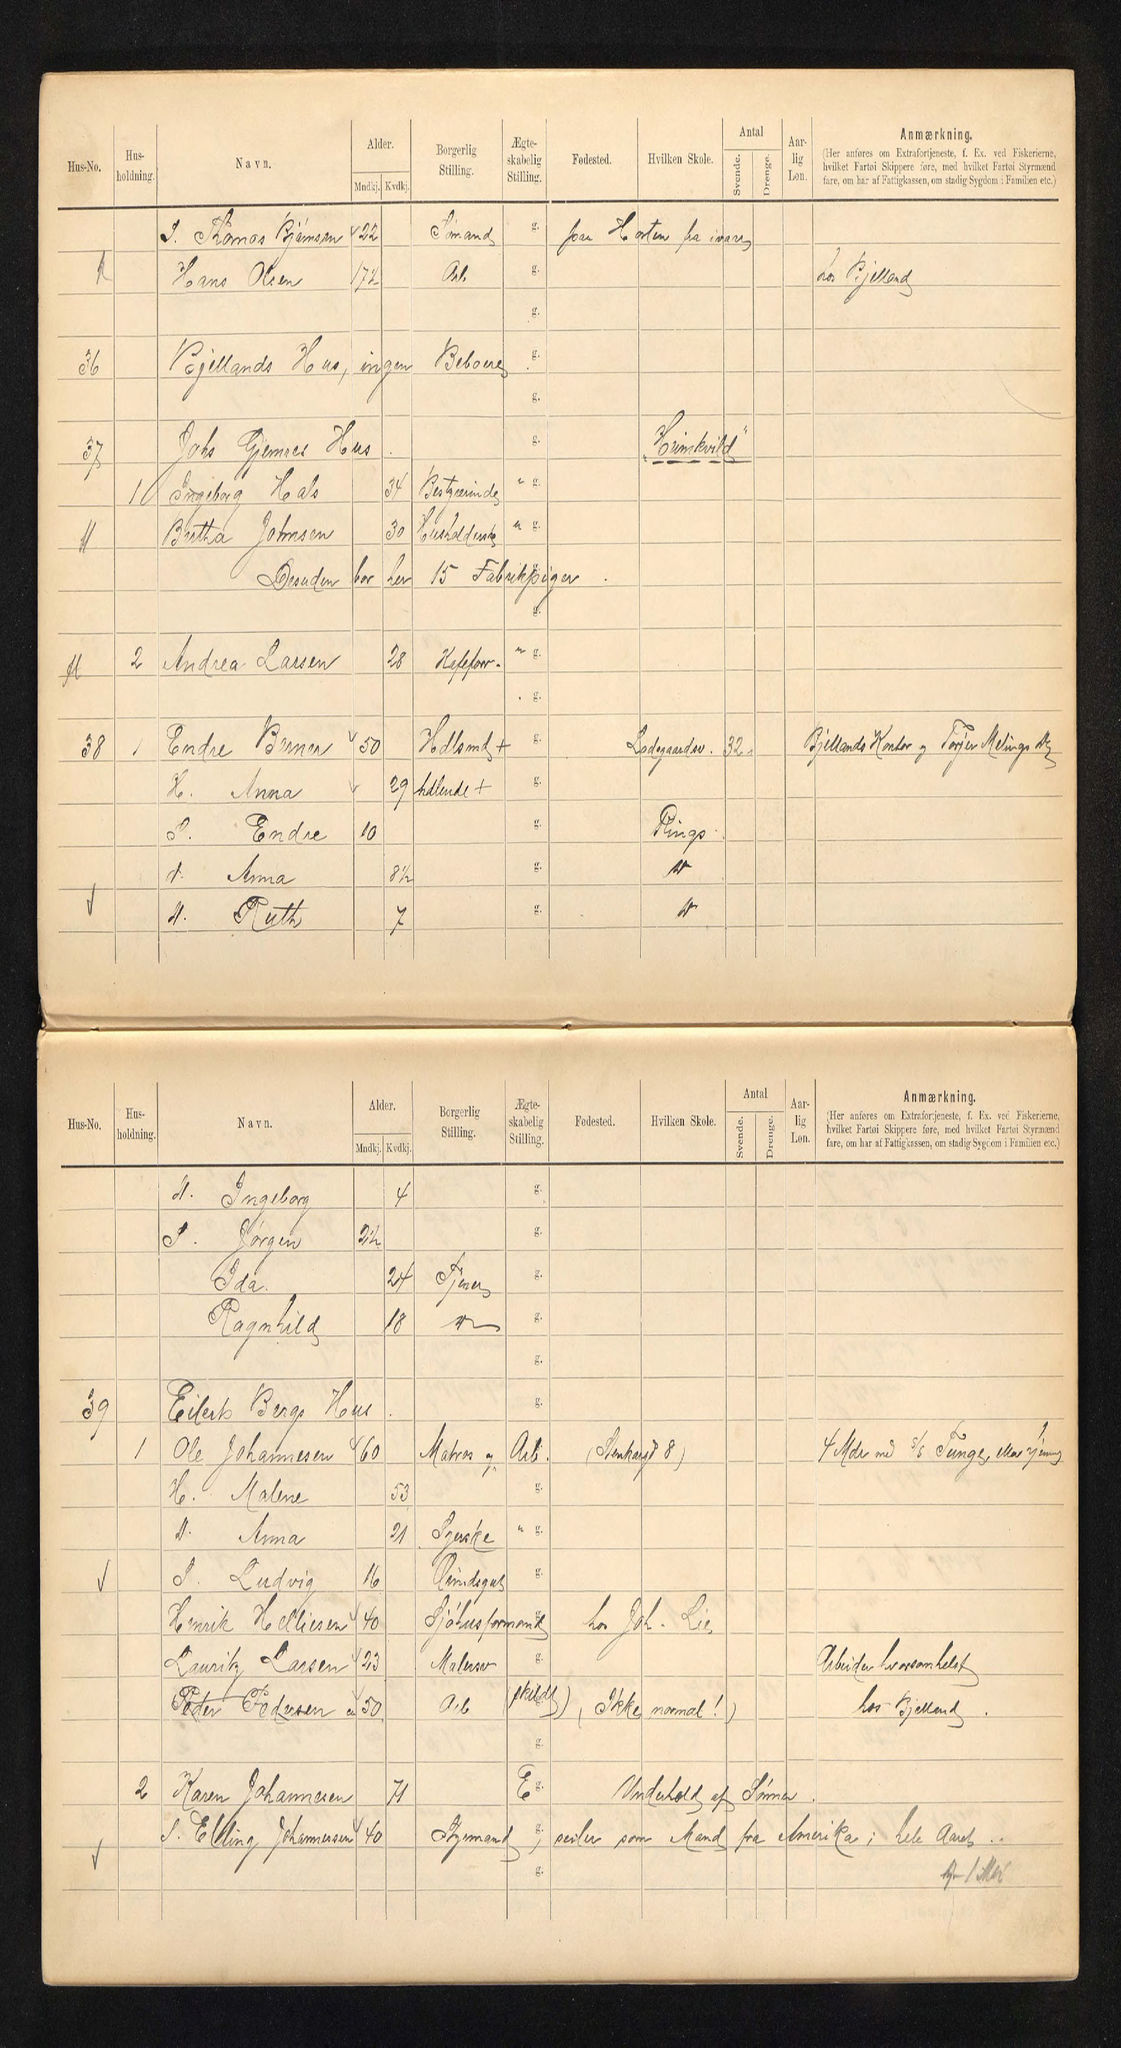 Hus-No. Hus-holdning. Navn. Alder. Mndkj. Kvdkj. Borgerlig Stilling. Ægte-skabelig Stilling. Fødested. Hvilken Skole. Antal Svende. Drenge. Aar-lig Løn. Anmærkning.
(Her anføres om Extrafortjeneste, f. Ex. ved Fiskerierne, hvilket Fartøi Skippere føre, med hvilket Fartøi Styrmænd fare, om har af Fattigkassen, om stadig Sygdom i Familien etc.)
S. Thomas Bjørnsen 22 Sømand g. paa Horten fra ivaar
Hans Olsen 172 Arb. g. hos Bjelland
g.
36 Bjellands Hus, ingen Beboere g.
g.
37 Johs Gjemres Hus. g. "Heimkvild"
1 Ingeborg Hals 34 Bestyrerinde " g.
Bertha Johnsen 30 Husholderske " g.
Desuden bor her 15 Fabrikpiger. g.
g.
2 Andrea Larsen 28 Kafeforr. " g.
g.
38 1 Endre 50 Hdlsmd + g. Ladegaardsv. 32 Bjellands Kontor og Torjer Melings
H. Anna 29 hdlende + g.
S. Endre 10 g. Kings
d. Anna 8½ g. "
d. Ruth 7 g. "
Hus-No. Hus-holdning. Navn. Alder. Mndkj. Kvdkj. Borgerlig Stilling. Ægte-skabelig Stilling. Fødested. Hvilken Skole. Antal Svende. Drenge. Aar-lig Løn. Anmærkning.
(Her anføres om Extrafortjeneste, f. Ex. ved Fiskerierne, hvilket Fartøi Skippere føre, med hvilket Fartøi Styrmænd fare, om har af Fattigkassen, om stadig Sygdom i Familien etc.)
d. Ingeborg 4 g.
S. Jørgen 2½ g.
Ida 24 Tjener g.
Ragnhild 18 " g.
g.
39 Eilert Bergs Hus. g.
1 Ole Johannesen 60 Matros og Arb. (Stenkargt 8) 4 Mdr med S/S Tunge,
H. Malene 53 g.
d. Anna 21 Syerske " g.
S. Ludvig 16 g.
Henrik Helliesen 40 Sjøhusformand g. hos Joh. Lie
Lauritz Larsen 23 Malersv g. Arbeider hvorsomhelst
Peder Pedersen 50 Arb (skildt) (Ikke normal!) hos Bjelland.
g.
2 Karen Johannesen 71 E g. Underhold af Sønner.
S. Elling Johannesen 40 Styrmand g., seiler som Mand fra Amerika i hele Aaret..
g.